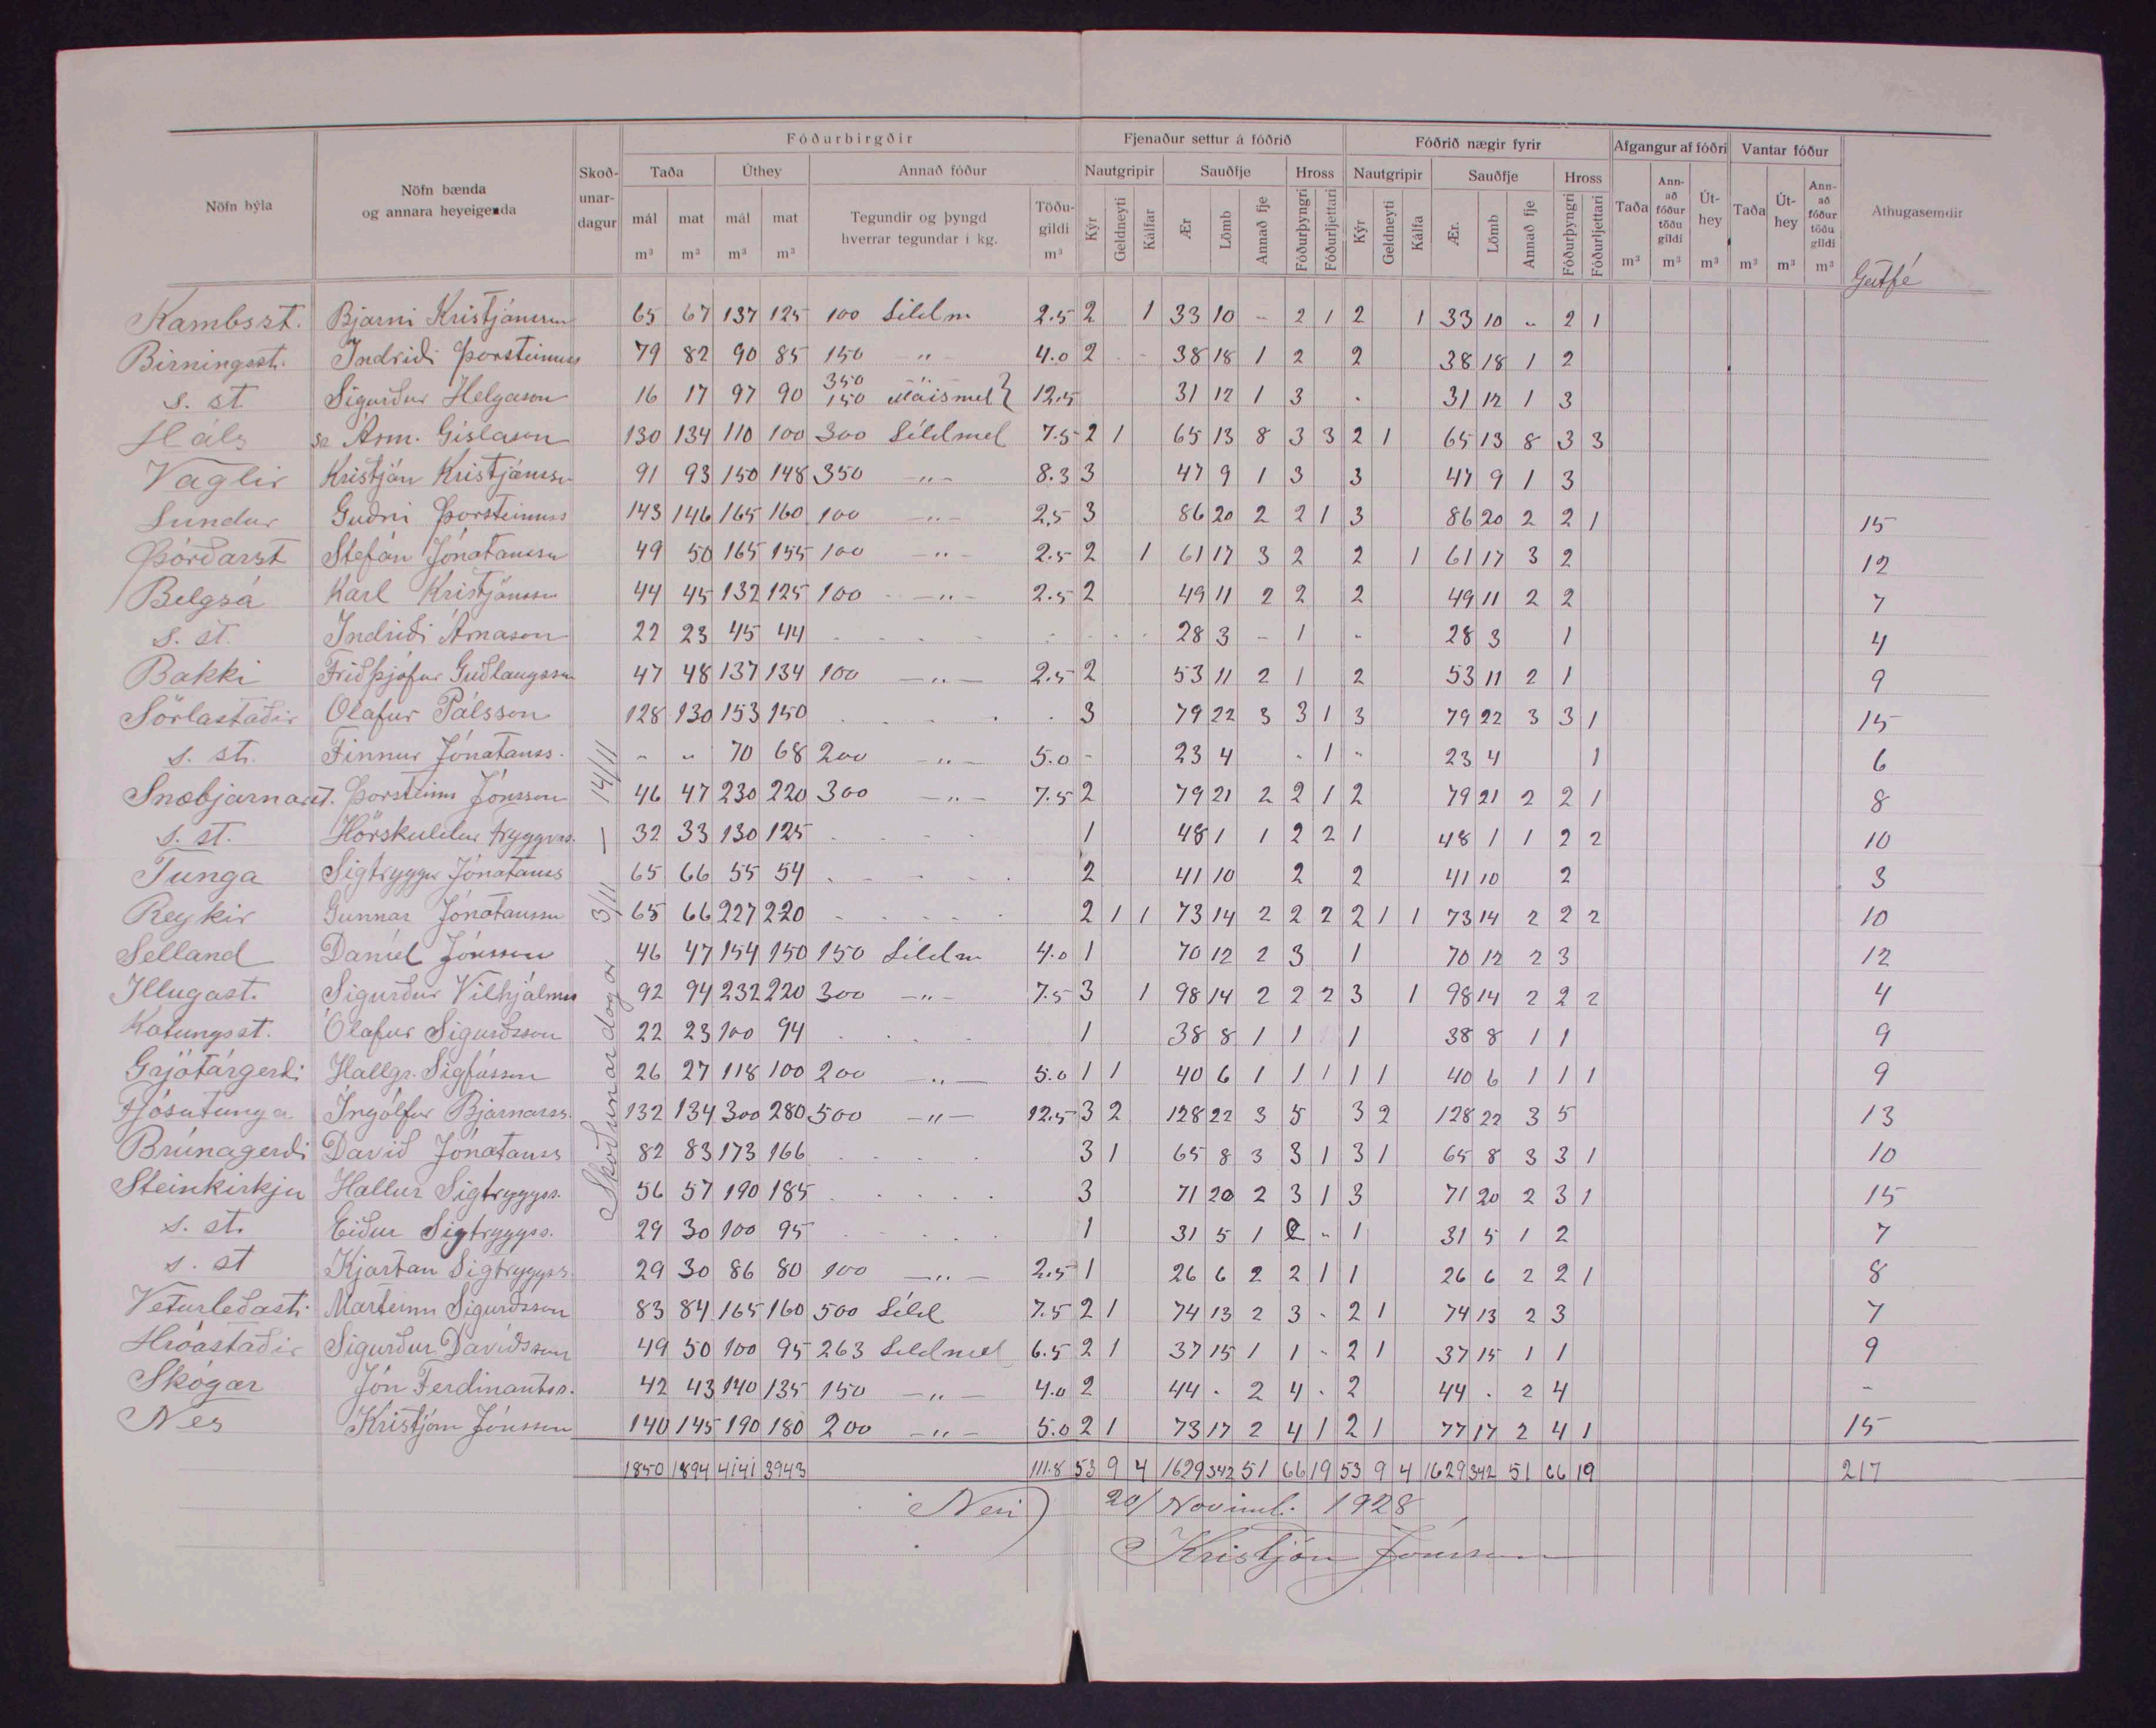 Nöfn býla
Nöfn bænda og annara heyeigenda
Skoð-unar-dagur
Fóðurbirgðir
Fjenaður settur á fóðrið
Fóðrið nægir fyrir
Afgangur af fóðri
Vantar fóður
Athugasemdir
Taða Úthey Annað fóður Nautgripir Sauðfje Hross Nautgripir Sauðfje Hross
mál m³ mat m³ mál m³ mat m³ Tegundir og þyngd hverrar tegundar í kg. Töðu-gildi m³ Kýr Geldneyti Kálfar Ær Lömb Annað fje Fóðurþyngri Fóðurljettari Kýr Geldneyti Kálfa Ær. Lömb Annað fje Fóðurþyngri Fóðurljettari Taða m³ Ann-að fóður töðu gildi m³ Út-hey m³ Taða m³ Út-hey m³ Ann-að fóður töðu gildi m³
Geitfé
Kambsst. Bjarni Kristjánsson 65 67 137 125 100 Síldm 2.5 2 1 33 10 - 2 1 2 1 33 10 " 2 1
Birningsst. Indriði Þorsteinss 79 82 90 85 150 " 4.0 2 - - 38 18 1 2 2 38 18 1 2
s. st. Sigurður Helgason 16 17 97 90 350 " 150 Maismel } 12.5 31 12 1 3 . 31 12 1 3
Háls sr Ásm. Gíslason 130 134 110 100 300 Síldmel 7.5 2 1 65 13 8 3 3 2 1 65 13 8 3 3
Vaglir Kristján Kristjánsson 91 93 150 148 350 -"- 8.3 3 47 9 1 3 3 47 9 1 3
Lundur Guðni Þorsteinss 143 146 165 160 100 -"- 2.5 3 86 20 2 2 1 3 86 20 2 2 1 15
Þórðarst Stefán Jónatansson 49 50 165 155 100 -"- 2.5 2 1 61 17 3 2 2 1 61 17 3 2 12
Belgsá Karl Kristjánsson 44 45 132 125 100 -"- 2.5 2 49 11 2 2 2 49 11 2 2 7
s. st. Indriði Árnason 22 23 45 44 28 3 - 1 - 28 3 1 4
Bakki Friðþjófur Guðlaugsson 47 48 137 134 100 -"- 2.5 2 53 11 2 1 2 53 11 2 1 9
Sörlastaðir Olafur Pálsson 128 130 153 150 3 79 22 3 3 1 3 79 22 3 3 1 15
s. st. Finnur Jónatanss. - " 70 68 200 -"- 5.0 - 23 4 . 1 - 23 4 1 6
Snæbjarnarst. Þorsteinn Jónsson 46 47 230 220 300 -"- 7.5 2 79 21 2 2 1 2 79 21 2 2 1 8
s. st. Höskuldur Tryggvas. 32 33 130 125 1 48 1 1 2 2 1 48 1 1 2 2 10
Tunga Sigtryggur Jónatanss 65 66 55 54 2 41 10 2 2 41 10 2 3
Reykir Gunnar Jónatansson 65 66 227 220 2 1 1 73 14 2 2 2 2 1 1 73 14 2 2 2 10
Selland Daníel Jónsson 46 47 154 150 150 Síldm 4.0 1 70 12 2 3 1 70 12 2 3 12
Illugast. Sigurður Vilhjálmss 92 94 232 220 300 -"- 7.5 3 1 98 14 2 2 2 3 1 98 14 2 2 2 4
Kotungsst. Ólafur Sigurðsson 22 23 100 94 1 38 8 1 1 1 38 8 1 1 9
Grjótárgerði Hallgr. Sigfússon 26 27 118 100 200 -"- 5.0 1 1 40 6 1 1 1 1 1 40 6 1 1 1 9
Hjósutunga Ingólfur Bjarnass. 132 134 300 280 500 -"- 12.5 3 2 128 22 3 5 3 2 128 22 3 5 13
Brúnagerði Davíð Jónatanss 82 83 173 166 3 1 65 8 3 3 1 3 1 65 8 3 3 1 10
Steinkirkju Hallur Sigtryggss. 56 57 190 185 3 71 20 2 3 1 3 71 20 2 3 1 15
s. st. Eiður Sigtryggss. 29 30 100 95 1 31 5 1 2 - 1 31 5 1 2 7
s. st Kjartan Sigtryggss. 29 30 86 80 100 -"- 2.5 1 26 6 2 2 1 1 26 6 2 2 1 8
Veturleðast. Marteinn Sigurðsson 83 84 165 160 500 Síld 7.5 2 1 74 13 2 3 - 2 1 74 13 2 3 7
Hróastaðir Sigurður Davíðsson 49 50 100 95 263 Síldmel 6.5 2 1 37 15 1 1 - 2 1 37 15 1 1 9
Skógar Jón Ferdinantss. 42 43 140 135 150 -"- 4.0 2 44 . 2 4 . 2 44 . 2 4 -
Nes Kristján Jónsson 140 145 190 180 200 -"- 5.0 2 1 73 17 2 4 1 2 1 77 17 2 4 1 15
1850 1894 4141 3943 111.8 53 9 4 1629 342 51 66 19 53 9 4 1629 342 51 66 19 217
Skoðunardagar 3/11 — 14/11
Nesi 20/ Novimb. 1928
Kristján Jónsson